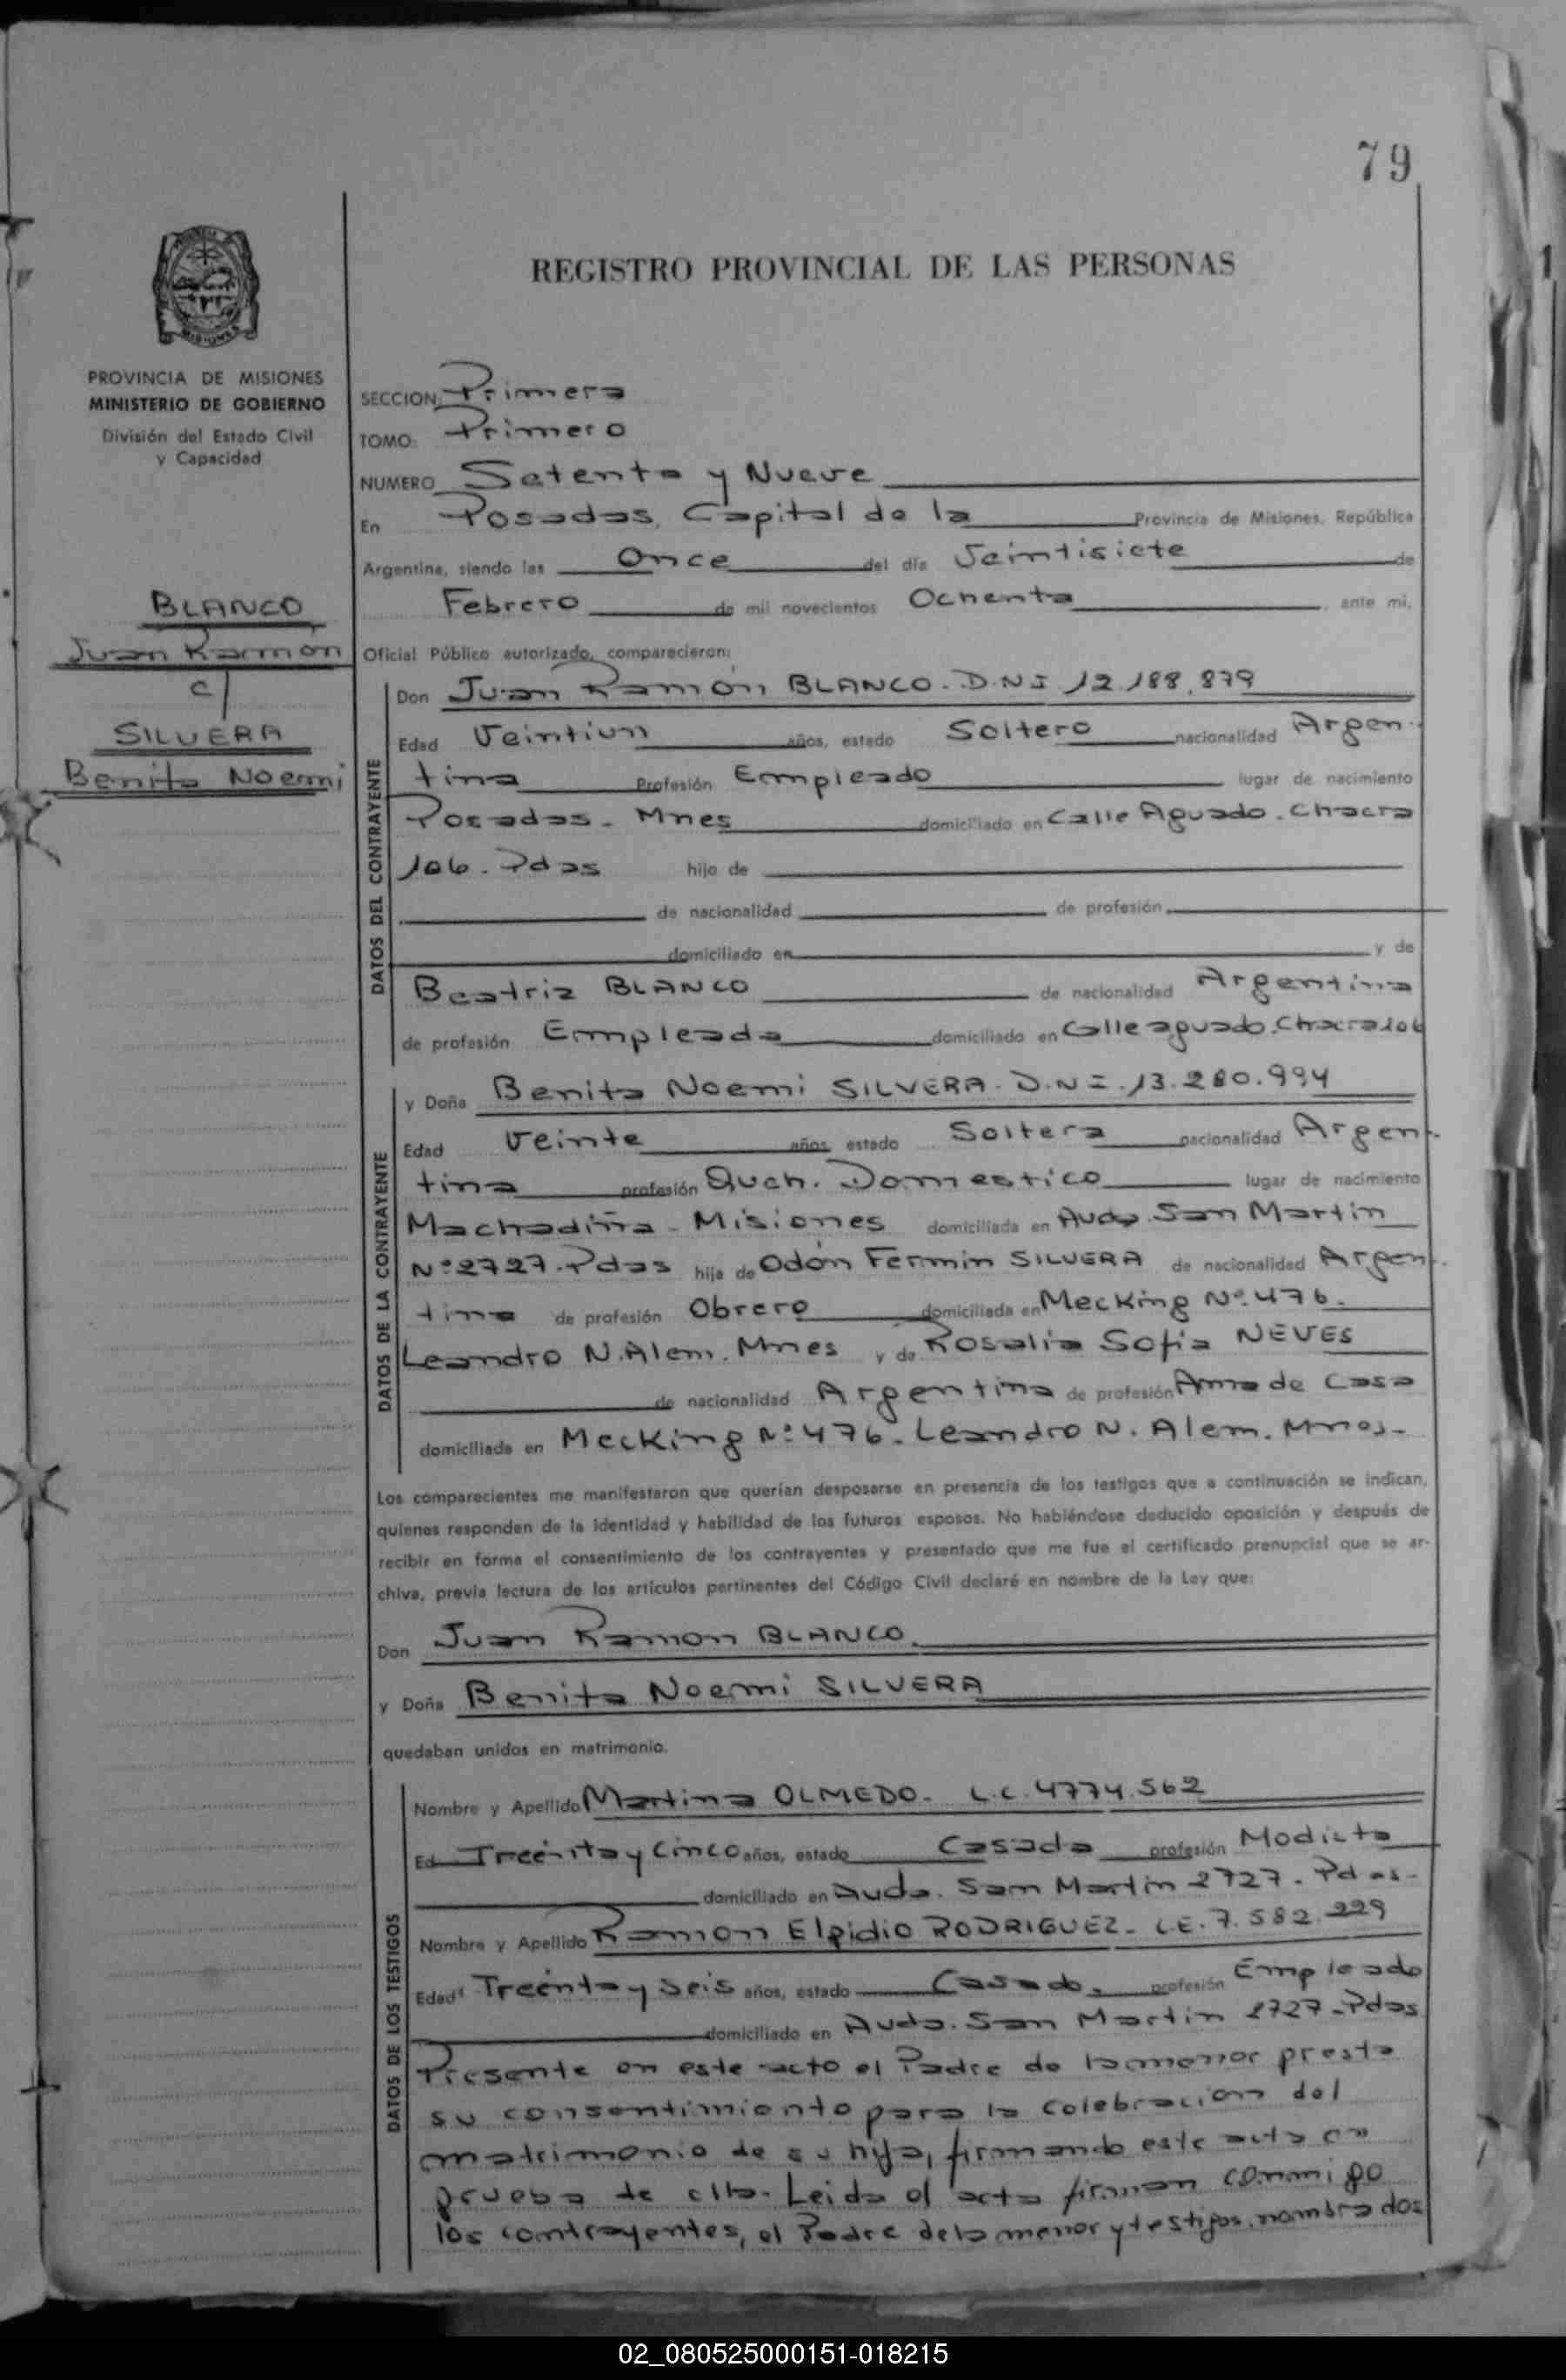 79
REGISTRO PROVINCIAL DE LAS PERSONAS
MISIONES
PROVINCIA DE MISIONES
MINISTERIO DE GOBIERNO
División del Estado Civil
y Capacidad
BLANCO
Juan Ramón
c/
SILVERA
Benita Noemi
SECCION: Primera
TOMO: Primero
NUMERO Setenta y Nueve
En Posadas, Capital de la Provincia de Misiones, República
Argentina, siendo las Once del día Veintisiete de
Febrero de mil novecientos Ochenta, ante mi,
Oficial Público autorizado, comparecieron:
DATOS DEL CONTRAYENTE
Don Juan Ramón BLANCO. D.N.I 12.188.879
Edad Veintiun años, estado Soltero nacionalidad Argen-
tina Profesión Empleado lugar de nacimiento
Posadas. Mnes domiciliado en Calle Aguado. Chacra
106. Pdas hijo de
de nacionalidad de profesión
domiciliado en y de
Beatriz BLANCO de nacionalidad Argentina
de profesión Empleada domiciliado en Calle aguado. Chacra 106
DATOS DE LA CONTRAYENTE
y Doña Benita Noemi SILVERA. D.N.I. 13.280.994
Edad Veinte años estado Soltera nacionalidad Argen-
tina profesión Quch. Domestico lugar de nacimiento
Machadiña - Misiones domiciliada en Avda. San Martin
Nº 2727. Pdas hija de Odón Fermin SILVERA de nacionalidad Argen-
tina de profesión Obrero domiciliada en Mecking Nº 476.
Leandro N. Alem. Mnes y de Rosalia Sofia NEVES
de nacionalidad Argentina de profesión Ama de Casa
domiciliada en Mecking Nº 476. Leandro N. Alem. Mnes.
Los comparecientes me manifestaron que querían desposarse en presencia de los testigos que a continuación se indican,
quienes responden de la identidad y habilidad de los futuros esposos. No habiéndose deducido oposición y después de
recibir en forma el consentimiento de los contrayentes y presentado que me fue el certificado prenupcial que se ar-
chiva, previa lectura de los artículos pertinentes del Código Civil declaré en nombre de la Ley que:
Don Juan Ramon BLANCO.
y Doña Benita Noemi SILVERA
quedaban unidos en matrimonio.
DATOS DE LOS TESTIGOS
Nombre y Apellido Martina OLMEDO. L.C. 4774.562
Ed Treinta y Cinco años, estado Casada profesión Modista
domiciliado en Avda. San Martin 2727. Pdas.
Nombre y Apellido Ramon Elpidio RODRIGUEZ. L.E. 7.582.229
Edad Treinta y Seis años, estado Casado. profesión Empleado
domiciliado en Avda. San Martin 2727. Pdas
Presente en este acto el Padre de la menor presta
su consentimiento para la celebracion del
matrimonio de su hija, firmando este acta en
prueba de ello. Leida el acta firman conmigo
los contrayentes, el Padre de la menor y testigos nombrados
02_080525000151-018215